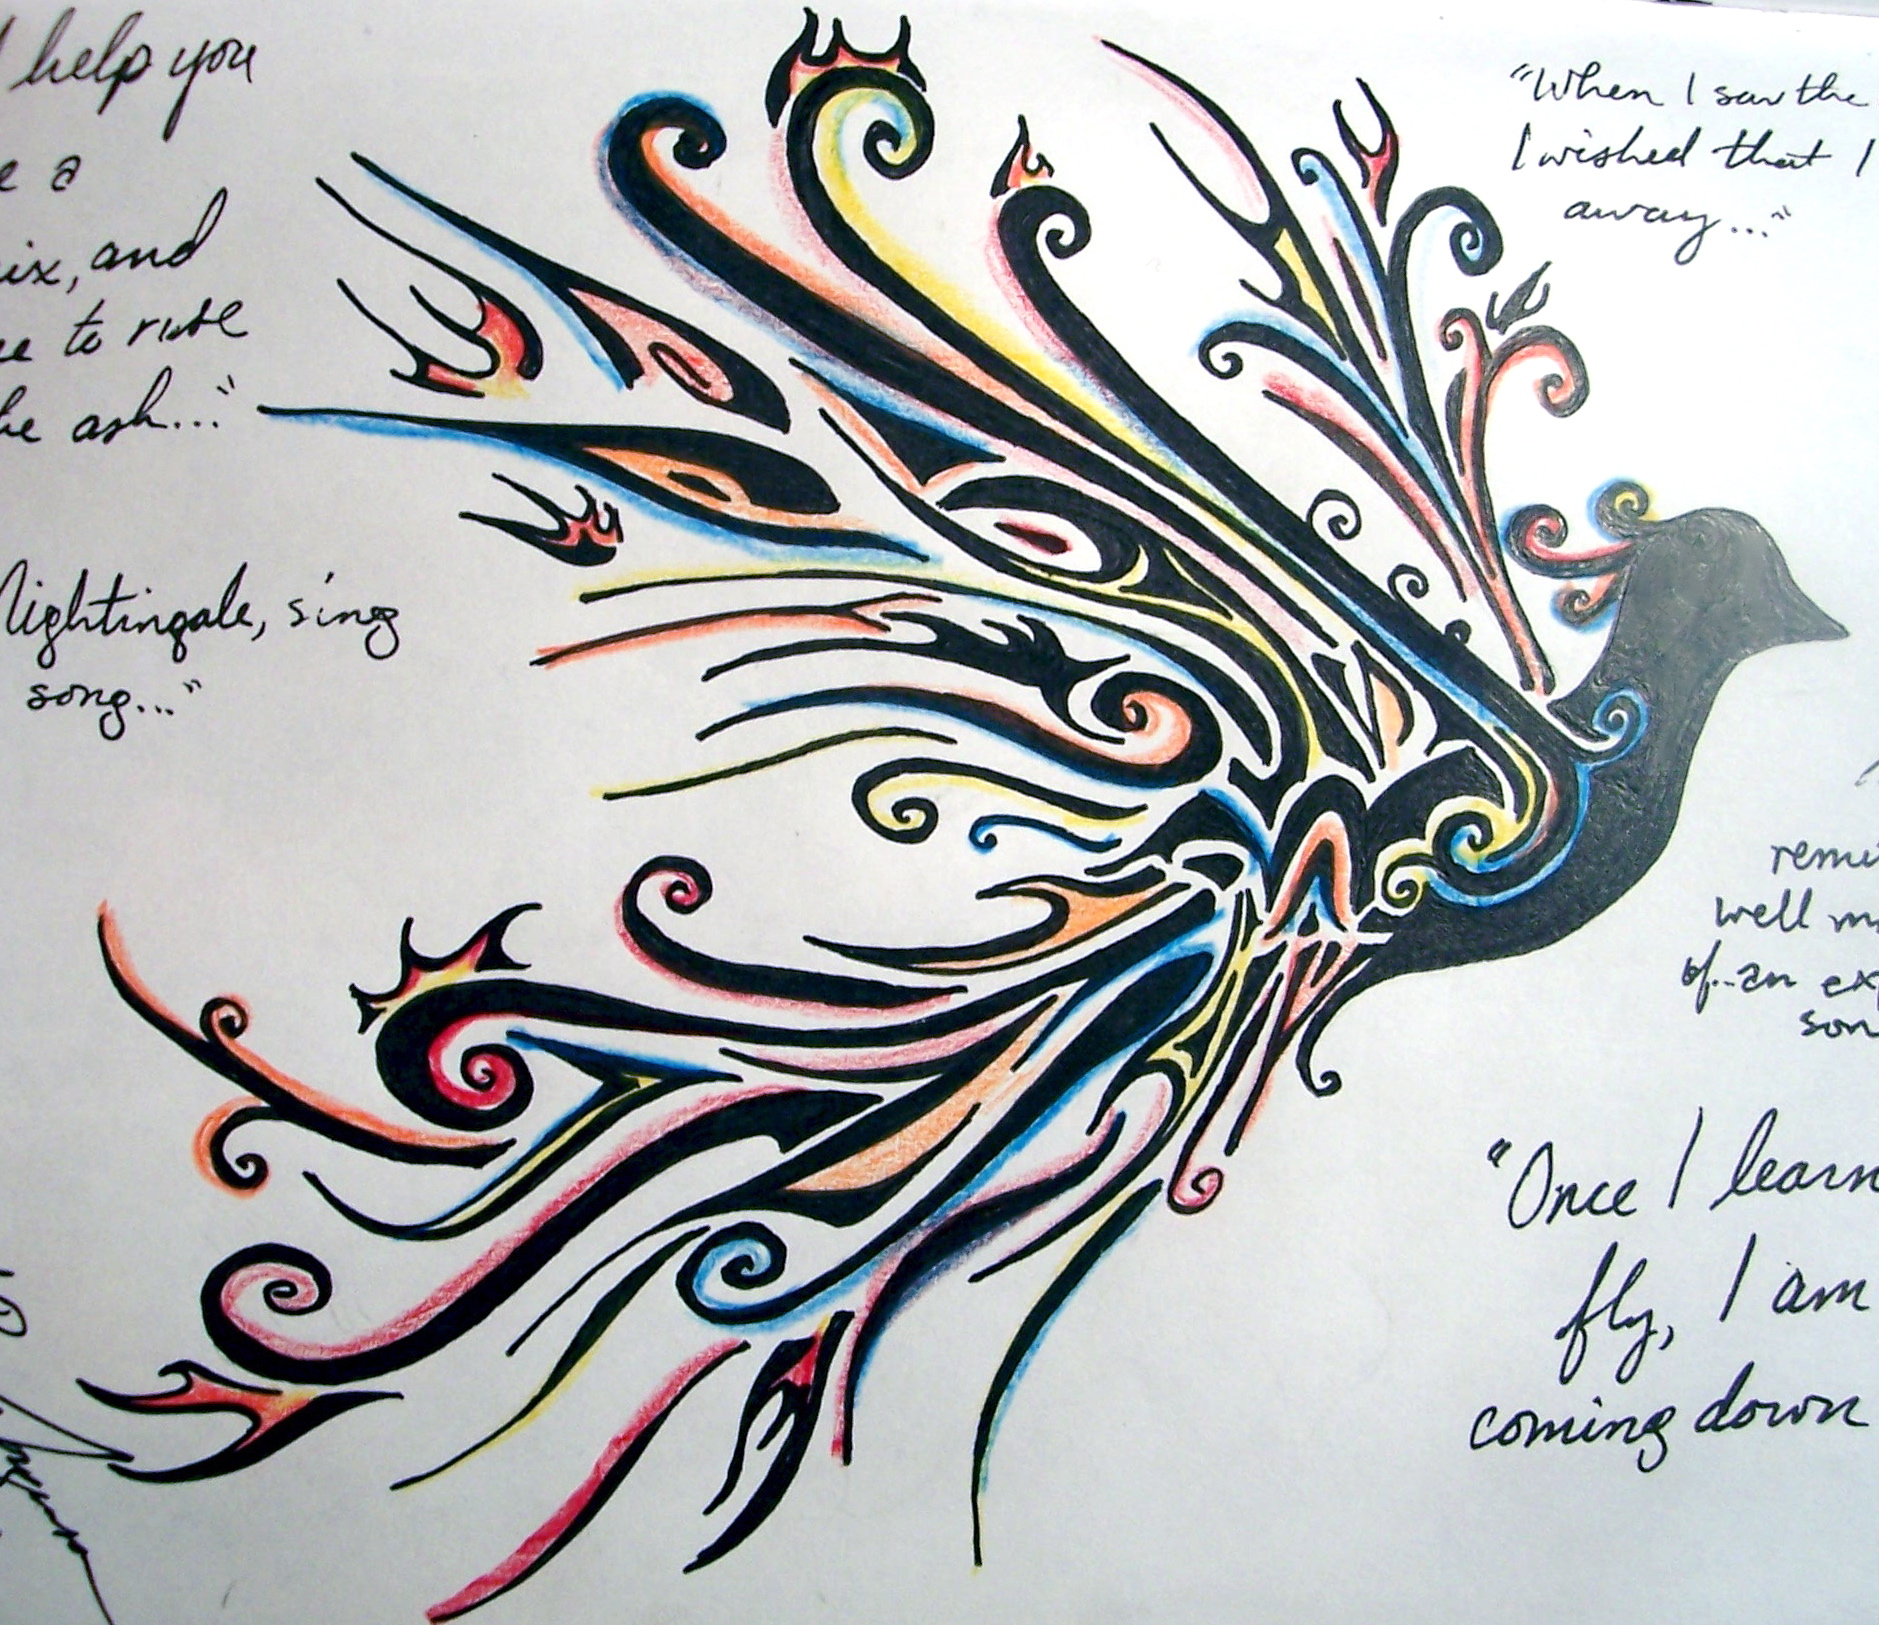 help you
e a
ix, and
e to rise
he ash..."
Nightingale, sing
song..."
"When I saw the
I wished that I
away..."
remi
well m
of...an ex
son
"Once I learn
fly, I am
coming down